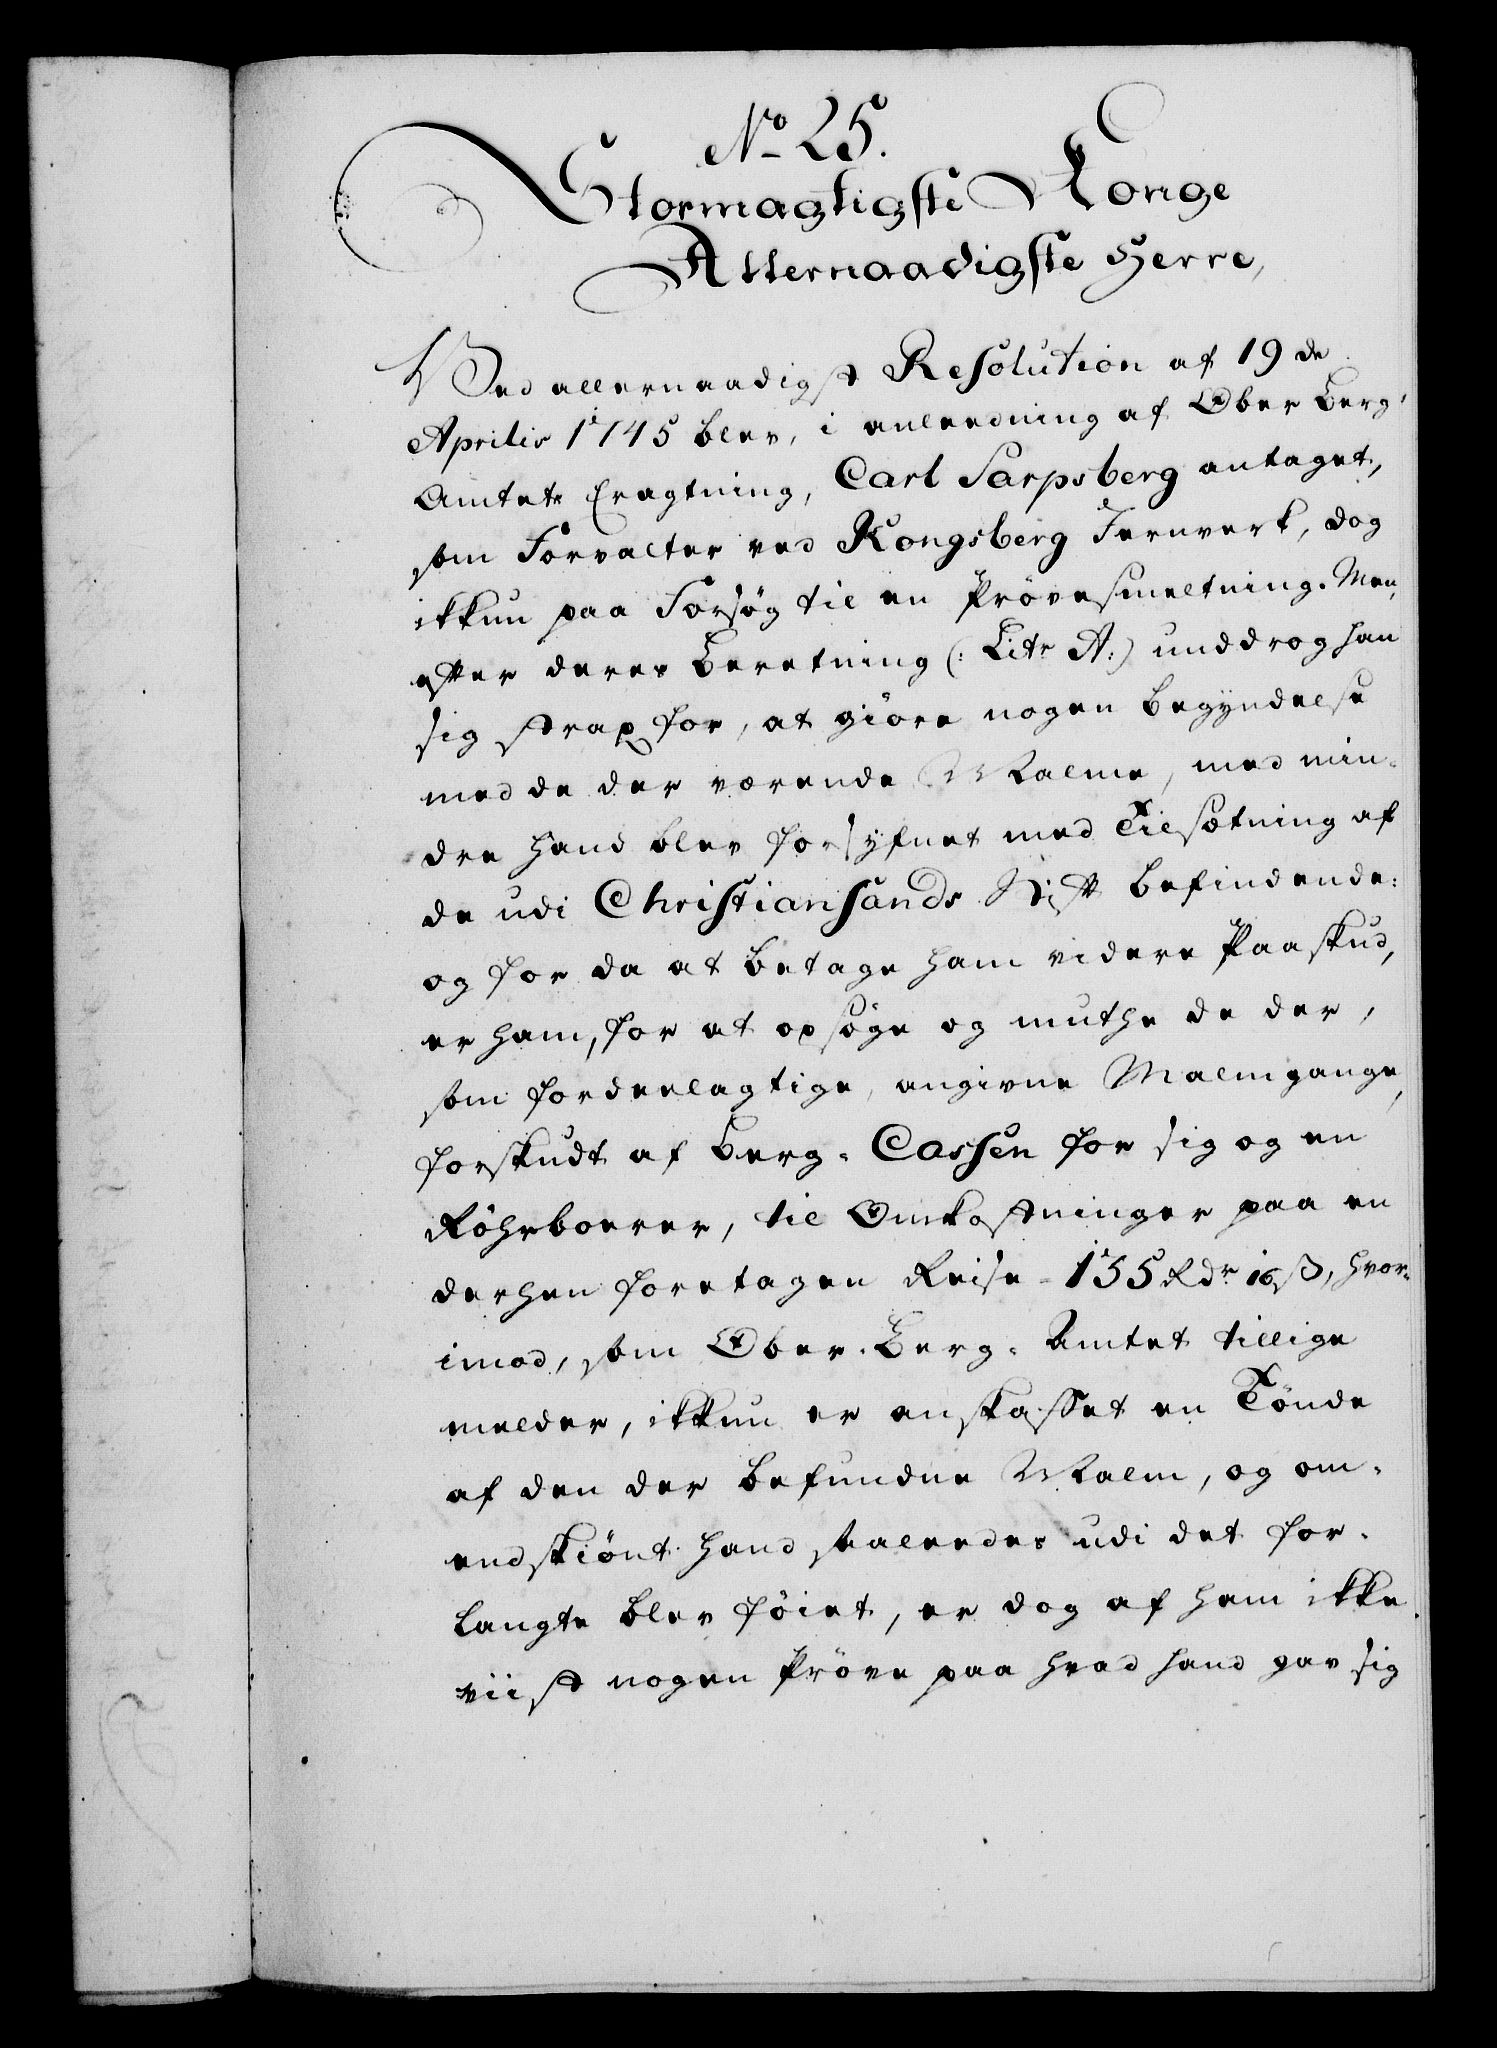 No 25.
Stormagtigste Konge
Allernaadigste Herre,
Ved allernaadigst Resolution af 19de
Aprilis 1745 blev, i anleedning af Ober Berg-
Amtets Eragtning, Carl Sarpsberg antaget,
som Forvalter ved Kongsberg Jernverk, dog
ikkun paa Forsøg til en Prøvesmeltning. Men
efter deres Beretning (: Litr A:) unddrog han
sig strax for, at giöre nogen begyndelse
med de der værende Malme, med min-
dre hand blev forsÿnet med Tilsætning af
de udi Christiansands Stift befindende:
og for da at betage ham videre Paaskud,
er ham, for at opsöge og muthe de der,
som fordeelagtige, angivne Malmgange,
forskudt af Berg-Cassen for sig og en
Röhrboerer, til Omkostninger paa en
derhen foretagen Reise - 135 Rdr 16 ß, hvor-
imod, som Ober-Berg-Amtet tillige
melder, ikkun er anskaffet en Tönde
af den der befundne Malm, og om-
endskiönt hand saaleedes udi det for-
langte blev föiet, er dog af ham ikke
viist nogen Pröve paa hvad hand gav sig